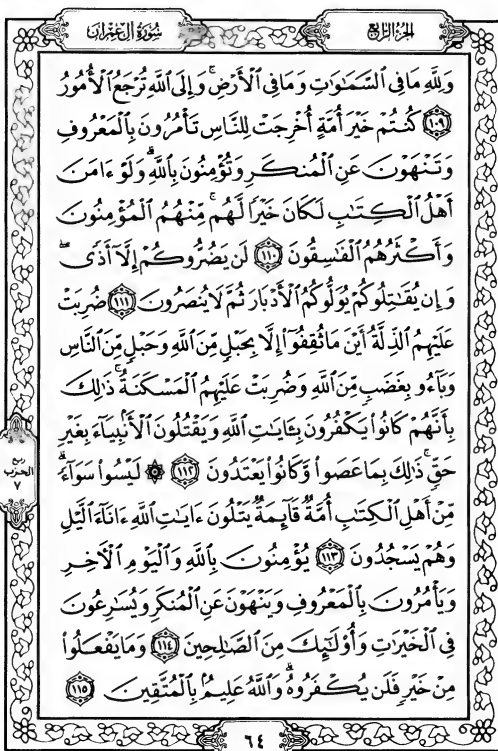 سُورَةُ آلِ عِمْرَانَ
الجُزءُ الرَّابِعُ
وَلِلَّهِ مَا فِي السَّمَٰوَٰتِ وَمَا فِي الْأَرْضِ ۚ وَإِلَى اللَّهِ تُرْجَعُ الْأُمُورُ
١٠٩ كُنتُمْ خَيْرَ أُمَّةٍ أُخْرِجَتْ لِلنَّاسِ تَأْمُرُونَ بِالْمَعْرُوفِ
وَتَنْهَوْنَ عَنِ الْمُنكَرِ وَتُؤْمِنُونَ بِاللَّهِ ۗ وَلَوْ ءَامَنَ
أَهْلُ الْكِتَٰبِ لَكَانَ خَيْرًا لَّهُم ۚ مِّنْهُمُ الْمُؤْمِنُونَ
وَأَكْثَرُهُمُ الْفَٰسِقُونَ ١١٠ لَن يَضُرُّوكُمْ إِلَّآ أَذًى ۖ
وَإِن يُقَٰتِلُوكُمْ يُوَلُّوكُمُ الْأَدْبَارَ ثُمَّ لَا يُنصَرُونَ ١١١ ضُرِبَتْ
عَلَيْهِمُ الذِّلَّةُ أَيْنَ مَا ثُقِفُوٓا۟ إِلَّا بِحَبْلٍ مِّنَ اللَّهِ وَحَبْلٍ مِّنَ النَّاسِ
وَبَآءُو بِغَضَبٍ مِّنَ اللَّهِ وَضُرِبَتْ عَلَيْهِمُ الْمَسْكَنَةُ ۚ ذَٰلِكَ
بِأَنَّهُمْ كَانُوا۟ يَكْفُرُونَ بِـَٔايَٰتِ اللَّهِ وَيَقْتُلُونَ الْأَنۢبِيَآءَ بِغَيْرِ
حَقٍّ ۚ ذَٰلِكَ بِمَا عَصَوا۟ وَّكَانُوا۟ يَعْتَدُونَ ١١٢ ۞ لَيْسُوا۟ سَوَآءً ۗ
مِّنْ أَهْلِ الْكِتَٰبِ أُمَّةٌ قَآئِمَةٌ يَتْلُونَ ءَايَٰتِ اللَّهِ ءَانَآءَ الَّيْلِ
وَهُمْ يَسْجُدُونَ ١١٣ يُؤْمِنُونَ بِاللَّهِ وَالْيَوْمِ الْءَاخِرِ
وَيَأْمُرُونَ بِالْمَعْرُوفِ وَيَنْهَوْنَ عَنِ الْمُنكَرِ وَيُسَٰرِعُونَ
فِي الْخَيْرَٰتِ وَأُو۟لَٰٓئِكَ مِنَ الصَّٰلِحِينَ ١١٤ وَمَا يَفْعَلُوا۟
مِنْ خَيْرٍ فَلَن يُكْفَرُوهُ ۗ وَاللَّهُ عَلِيمٌۢ بِالْمُتَّقِينَ ١١٥
ربع
الحزب
٧
٦٤